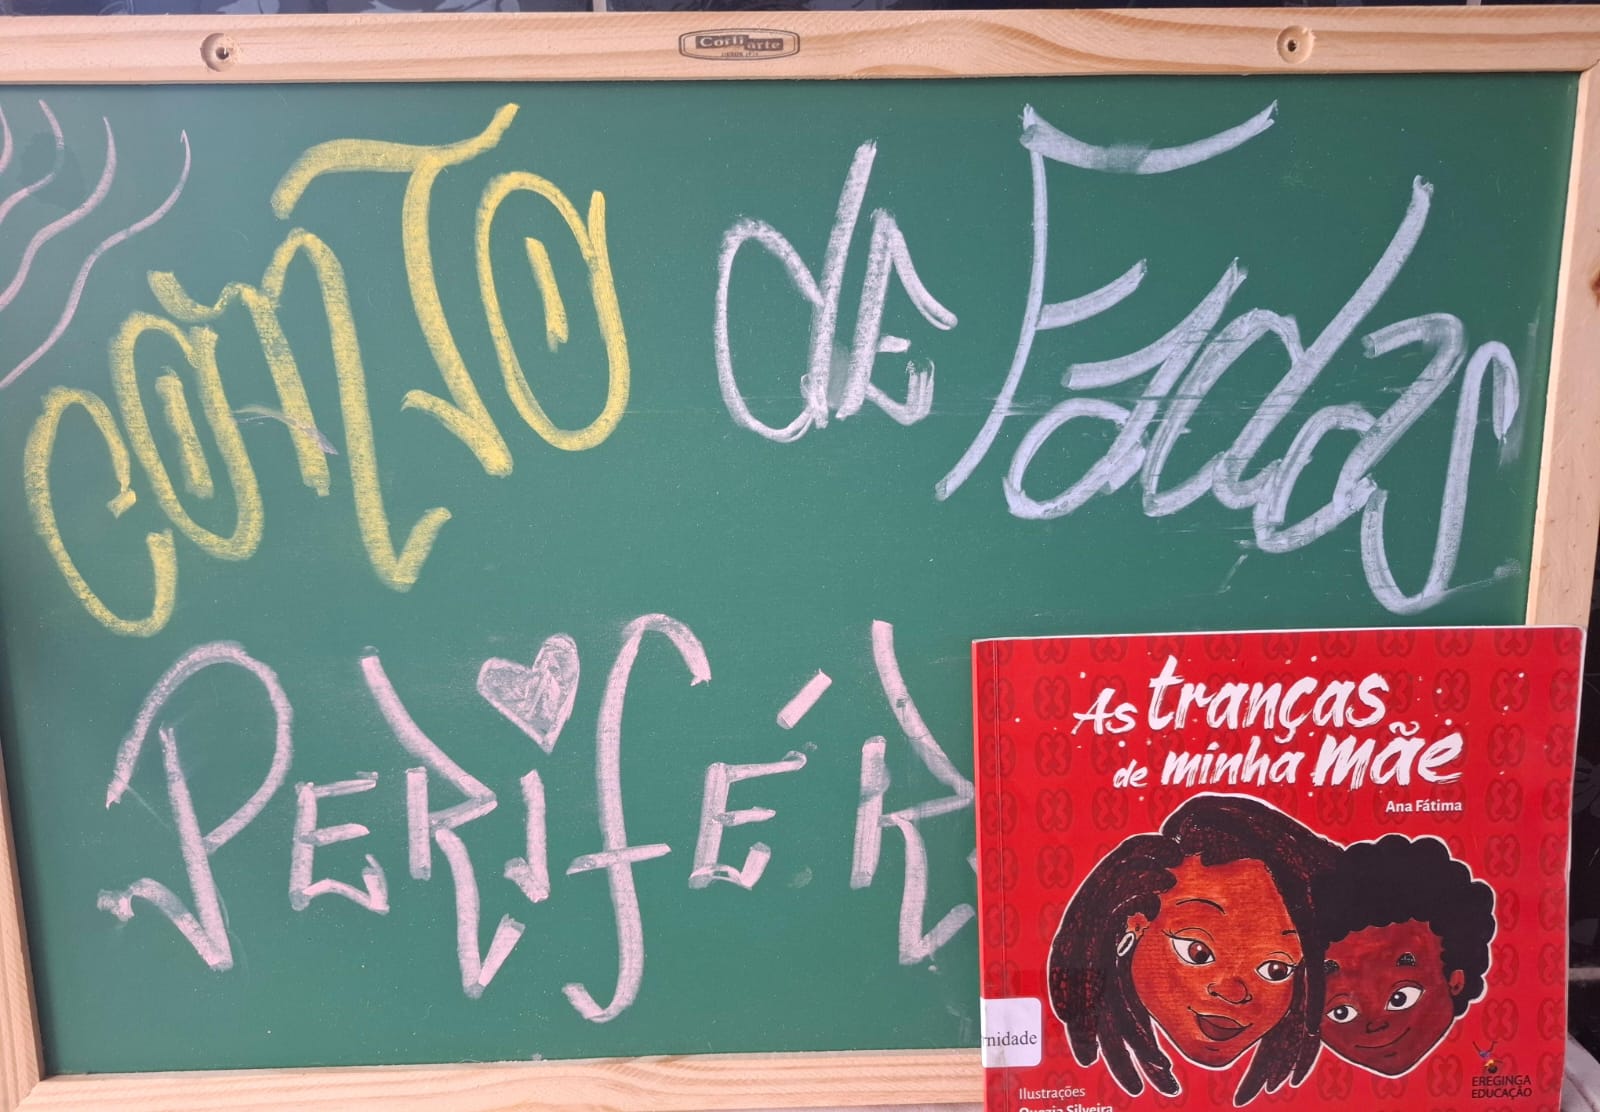 Corti arte
CONTO de Fadas
PERIFÉR
As tranças
de minha mãe
Ana Fátima
rnidade
Ilustrações
Quezia Silveira
EREGINGA
EDUCAÇÃO